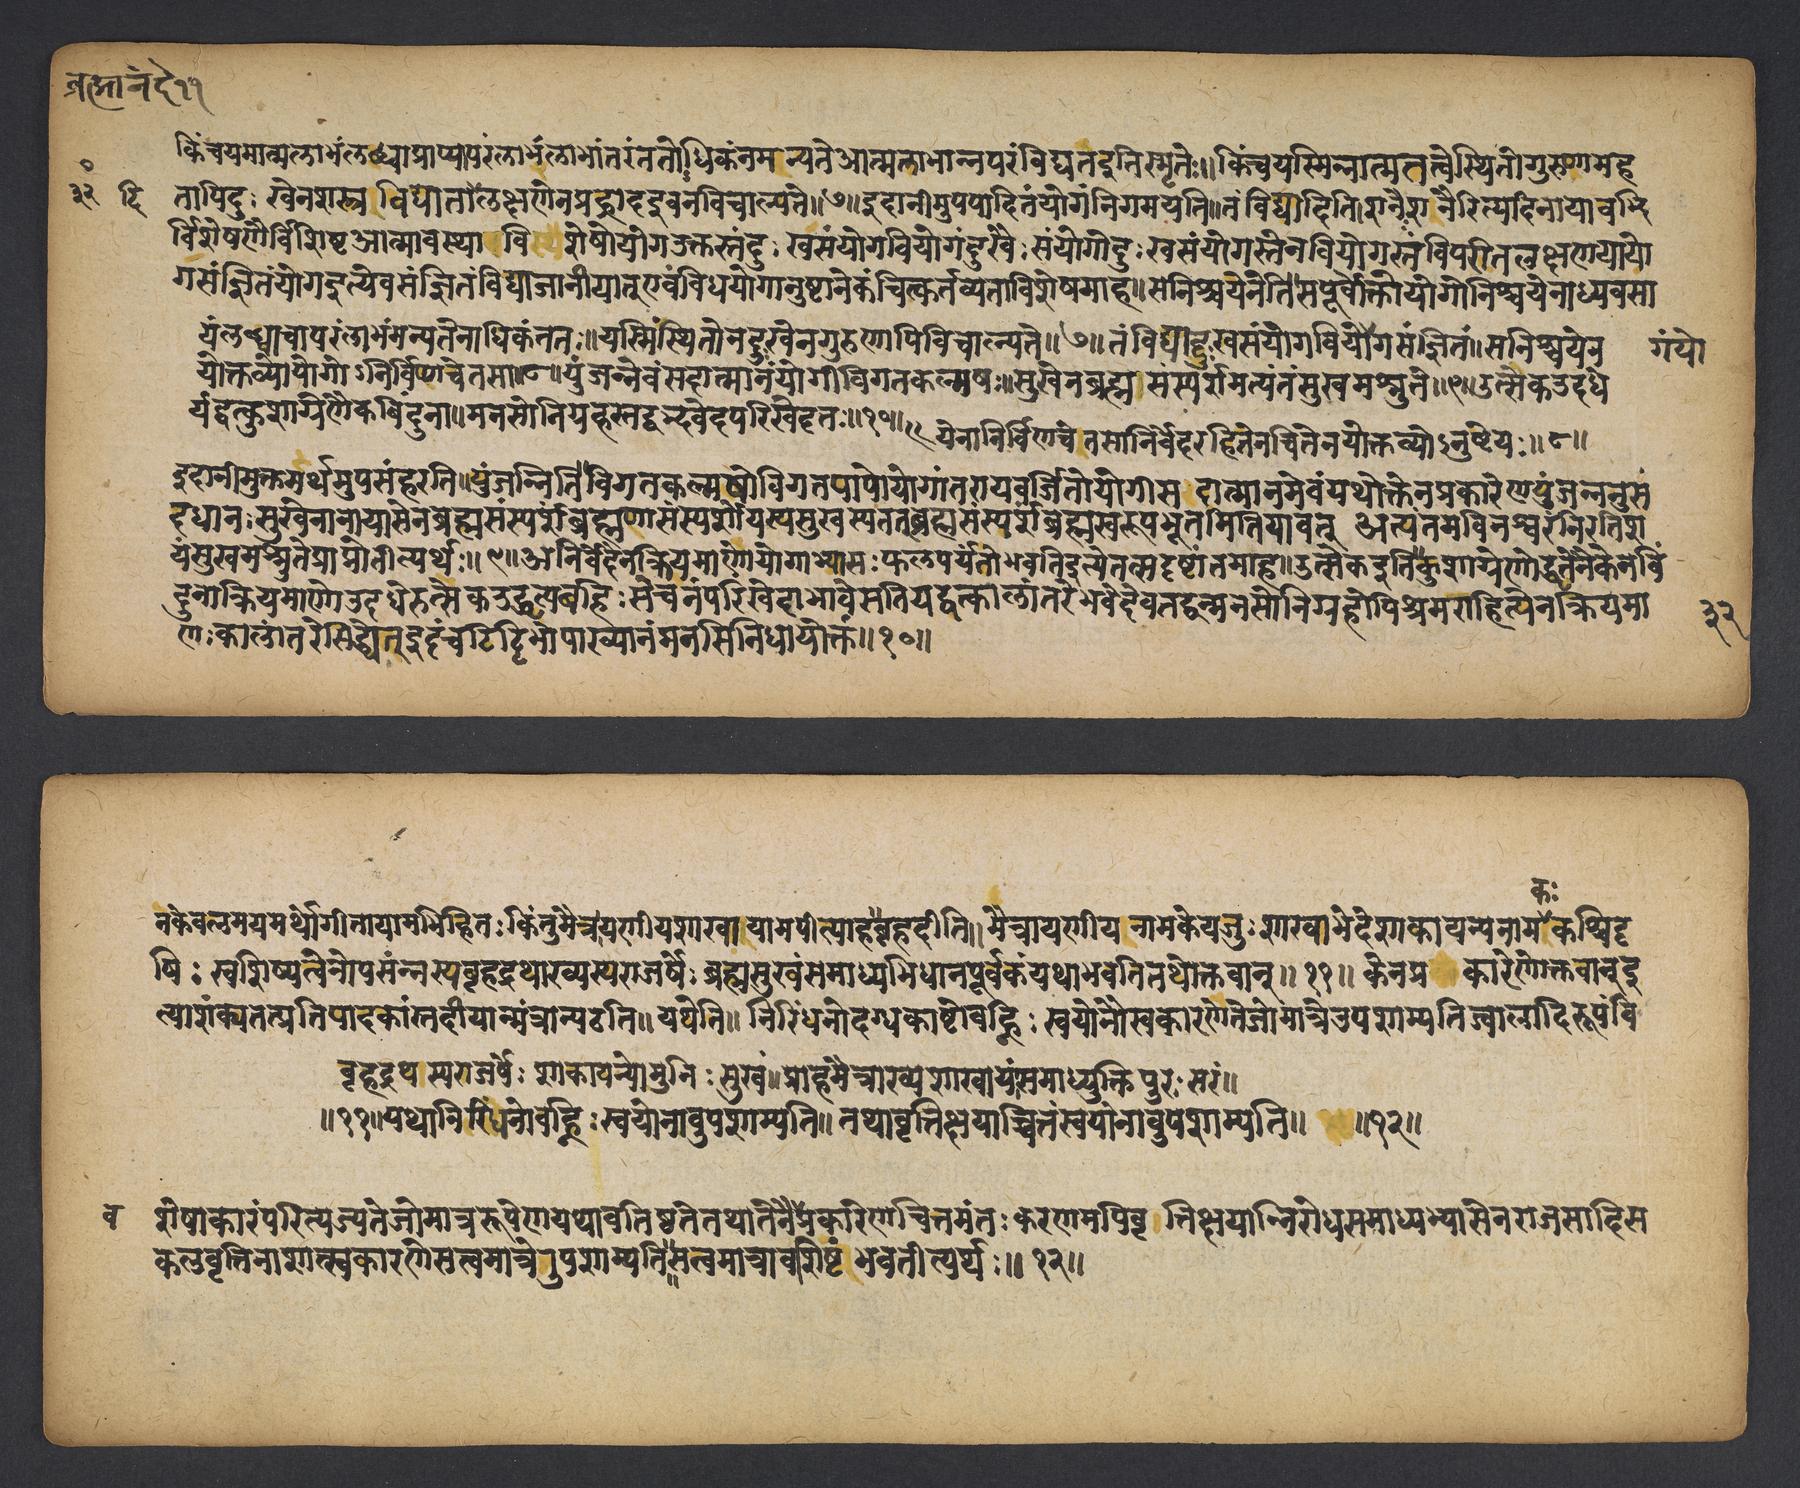 ब्रह्मानंदे ११
३२ टि
किंचयमात्मलाभंलब्ध्वाप्राप्यापरंलाभंलाभांतरंततोधिकंनमन्यतेआत्मलाभान्नपरंविद्यतइतिस्मृतेः॥किंचयस्मिन्नात्मतत्त्वेस्थितोगुरुणामह
तापिदुःखेनशस्त्रनिपातालक्षणेनप्रह्लादइवनविचाल्यते॥७॥इदानीमुपपादितंयोगंनिगमयति॥तंविद्यादिति॥शनैःशनैरित्यादिनायावद्भि
र्विशेषणैर्विशिष्टआत्मावस्थाविशेषोयोगउक्तस्तंदुःखसंयोगवियोगंदुःखैःसंयोगोदुःखसंयोगस्तेनवियोगस्तंविपरीतलक्षणयायो
गसंज्ञितंयोगइत्येवसंज्ञितंविद्याजानीयात्एवंविधयोगानुष्टानेकंचित्कर्तव्यताविशेषमाह॥सनिश्चयेनेति॥सपूर्वोक्तोयोगोनिश्चयेनाध्यवसा
यंलब्ध्वाचापरंलाभंमन्यतेनाधिकंततः॥यस्मिंस्थितोनदुःखेनगुरुणापिविचाल्यते॥७॥तंविद्याद्दुःखसंयोगवियोगसंज्ञितं॥सनिश्चयेन गंयो
योक्तव्योयोगोऽनिर्विण्णचेतसा॥८॥युंजन्नेवंसदात्मानंयोगीविगतकल्मषः॥सुखेनब्रह्मसंस्पर्शमत्यंतंसुखमश्नुते॥९॥उत्सेकउदधे
र्यद्वत्कुशाग्रेणैकबिंदुना॥मनसोनिग्रहस्तद्वद्भवेदपरिखेदतः॥१०॥
येनानिर्विण्णचेतसानिर्वेदरहितेनचित्तेनयोक्तव्योऽनुष्टेयः॥८॥
इदानीमुक्तमर्थमुपसंहरति॥युंजन्निति॥विगतकल्मषोविगतपापोयोगांतरायवर्जितोयोगीसदात्मानमेवंयथोक्तेनप्रकारेणयुंजन्ननुसं
दधानःसुखेनानायासेनब्रह्मसंस्पर्शंब्रह्मणासंस्पर्शोयस्यसुखस्यतत्ब्रह्मसंस्पर्शंब्रह्मस्वरूपभूतमितियावत् अत्यंतमविनश्वरंनिरतिश
यंसुखमश्नुतेप्राप्नोतीत्यर्थः॥९॥अनिर्वेदेनक्रियमाणोयोगाभ्यासःफलपर्यंतोभवतिइत्येतत्सदृष्टांतमाह॥उत्सेकइति॥कुशाग्रेणोद्धृतेनैकेनबिं
दुनाक्रियमाणेउदधेरुत्सेकउद्धृत्यबहिःसेचनंपरिखेदाभावेसतियद्वत्कालांतरेभवेदेवतद्वन्मनसोनिग्रहोपिश्रमराहित्येनक्रियमा
णःकालांतरेसिद्ध्येत्इदंचटिट्टिभोपाख्यानंमनसिनिधायोक्तं॥१०॥
३२
कः
नकेवलमयमर्थोगीतायामभिहितःकिंतुमैत्रायणीयशाखायामपीत्याह॥बृहदिति॥मैत्रायणीयनामकेयजुःशाखाभेदेशाकायन्यनामकश्चिदृ
षिःस्वशिष्यत्वेनोपसंन्नस्यबृहद्रथाख्यस्यराजर्षेःब्रह्मसुखंसमाध्यभिधानपूर्वकंयथाभवतितथोक्तवान्॥११॥केनप्रकारेणोक्तवान्इ
त्याशंक्यतत्प्रतिपादकांस्तदीयान्मंत्रान्पठति॥यथेति॥निरिंधनोदग्धकाष्टोवह्निःस्वयोनौस्वकारणेतेजोमात्रेउपशाम्यतिज्वालादिरूपंवि
बृहद्रथस्यराजर्षेःशाकायन्योमुनिःसुखं॥प्राहमैत्राख्यशाखायांसमाध्युक्तिपुरःसरं॥
॥११॥यथानिरिंधनोवह्निःस्वयोनावुपशाम्यति॥तथावृत्तिक्षयाच्चित्तंस्वयोनावुपशाम्यति॥ ॥१२॥
व शेषाकारंपरित्यज्यतेजोमात्ररूपेणयथावतिष्ठतेतथातेनैप्रकारेणचित्तमंतःकरणमपिवृत्तिक्षयान्निरोधसमाध्यभ्यासेनराजसादिस
कलवृत्तिनाशात्स्वकारणेसत्वमात्रेउपशाम्यति॥सत्वमात्रावशिष्टंभवतीत्यर्थः॥१२॥